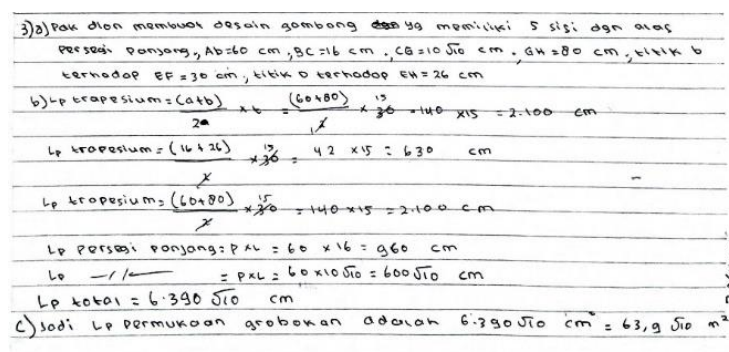 3)a) Pak dion membuat desain gambang yg memiliki 5 sisi dgn alas
persegi panjang, Ab=60 cm, BC=16 cm, CG=10√10 cm, GH=80 cm, titik b
terhadap EF=30 cm, titik D terhadap EH=26 cm
b) Lp trapesium = (a+b)/2 x t = (60+80)/2 x 30 = 140 x 15 = 2.100 cm
Lp trapesium = (16+26)/2 x 30 = 42 x 15 = 630 cm
Lp tropesium = (60+80)/2 x 30 = 140 x 15 = 2.100 cm
Lp persegi panjang = PxL = 60 x 16 = 960 cm
Lp —//— = PxL = 60 x 10√10 = 600√10 cm
Lp total = 6.390 √10 cm
c) Jadi Lp permukaan grobokan adalah 6.390√10 cm² = 63,9 √10 m²